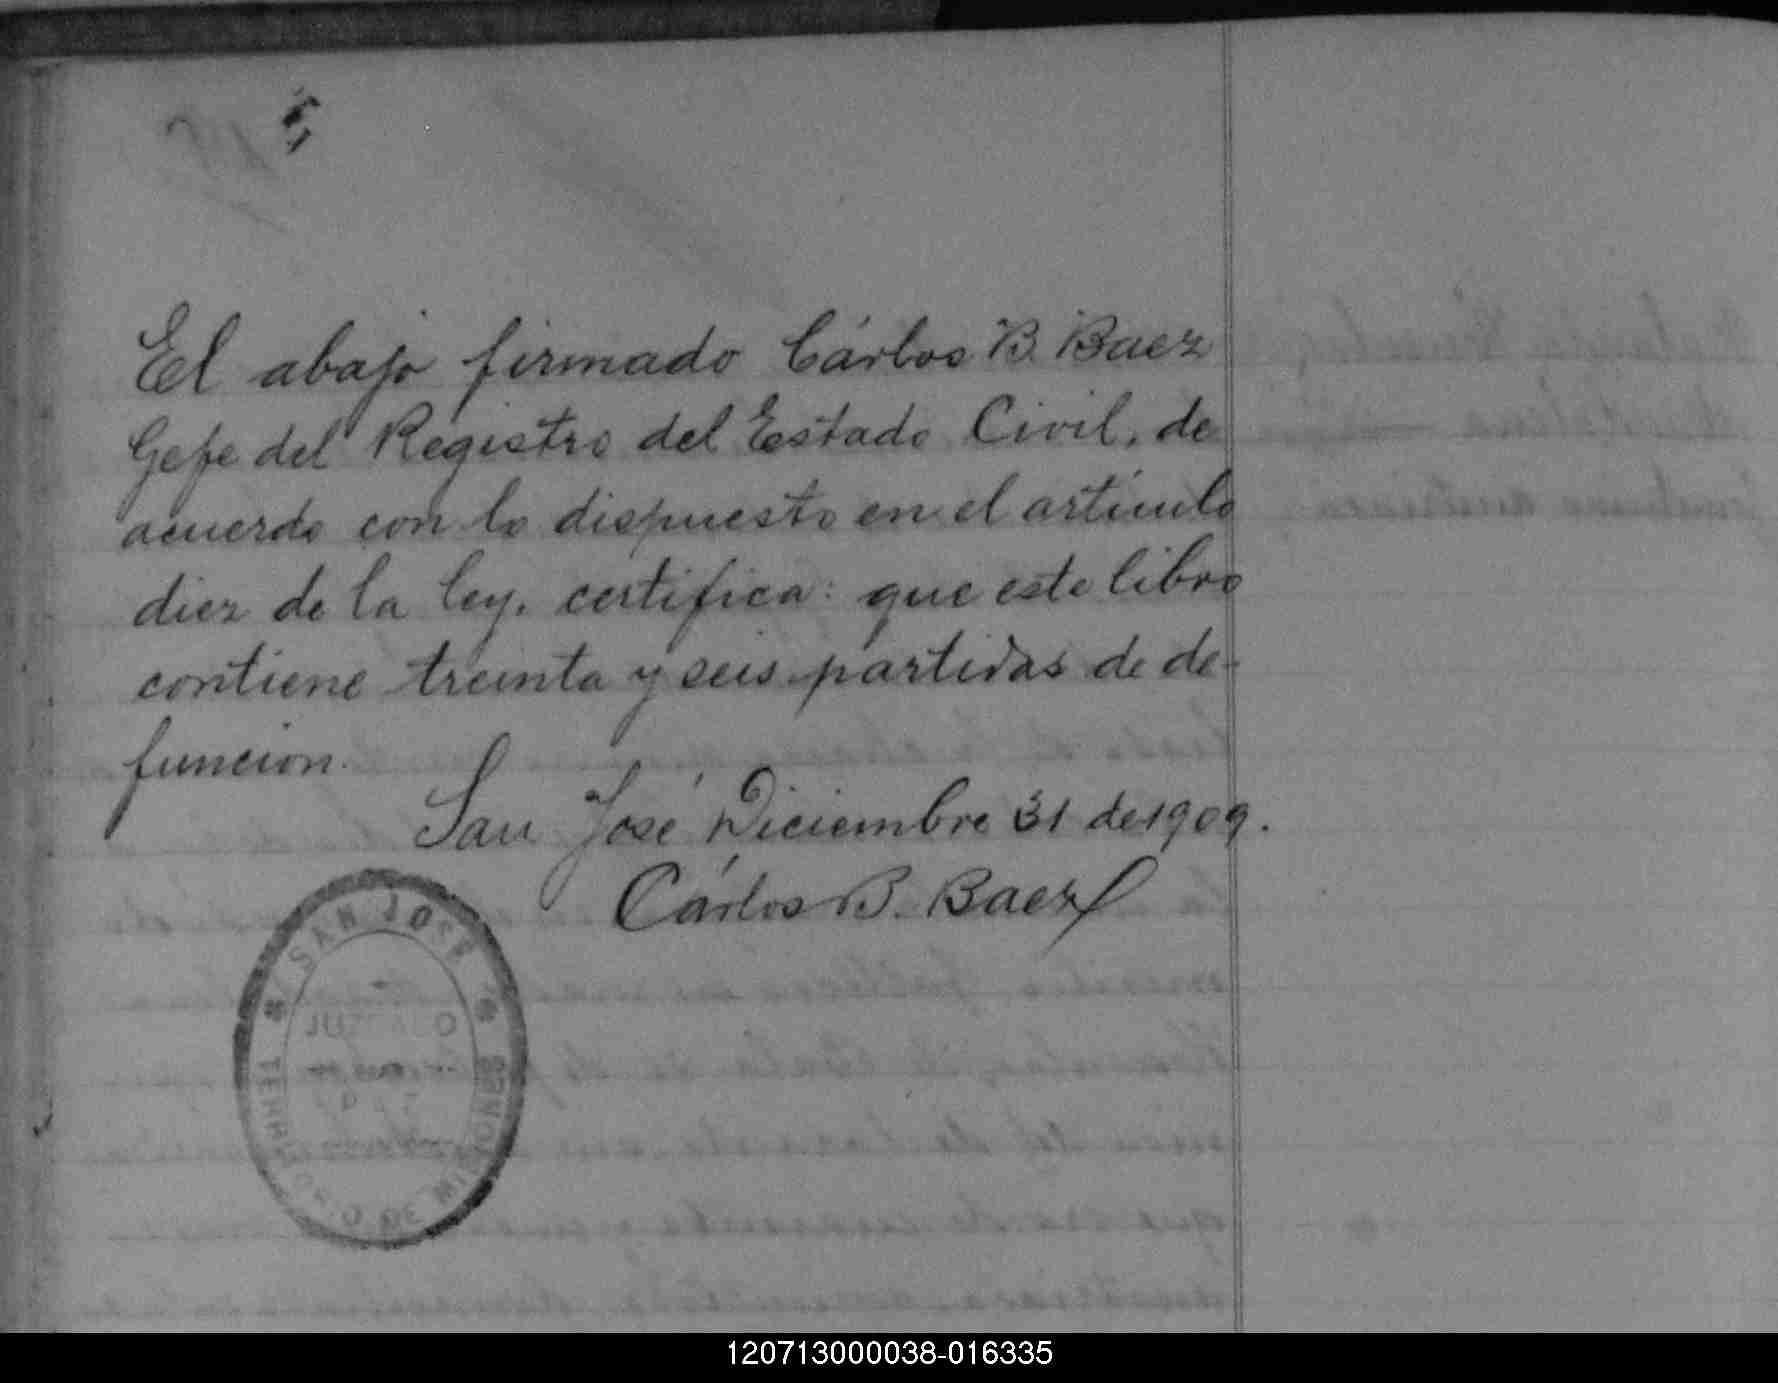 El abajo firmado Cárlos B. Baez
Gefe del Registro del Estado Civil, de
acuerdo con lo dispuesto en el artículo
diez de la ley, certifica: que este libro
contiene treinta y seis partidas de de-
funcion.
San José Diciembre 31 de 1909.
Cárlos B. Baez
SAN JOSE
JUZGADO
DE MISIONES
120713000038-016335